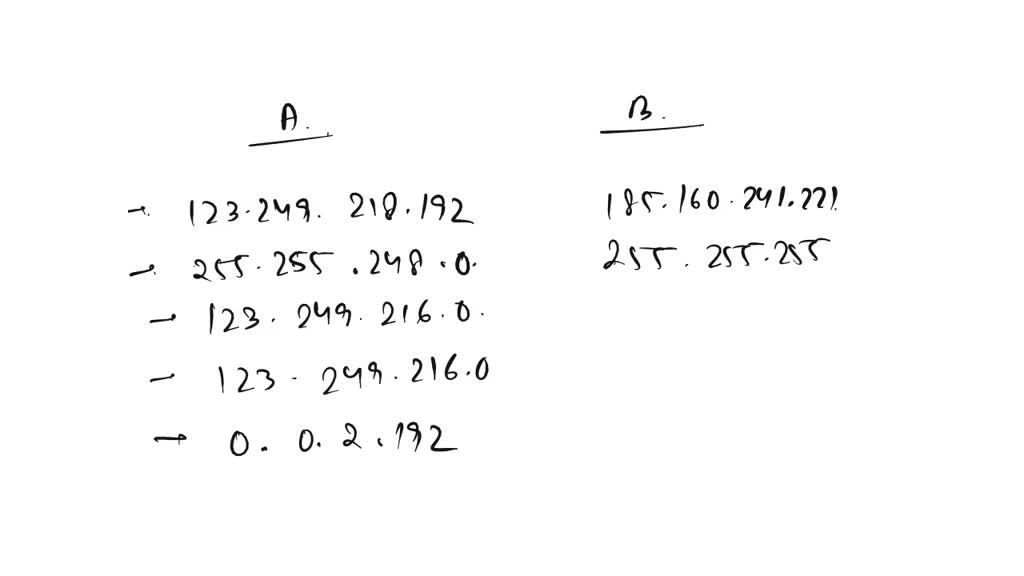 A.
→ 123.249. 218.192
→ 255.255.248.0.
→ 123. 249. 216.0.
→ 123. 249.216.0
→ 0. 0. 2.192
B.
185.160.241.221
255. 255.255